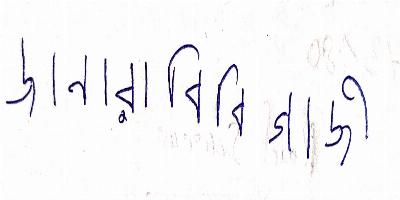 জানারা বিবি গাজী